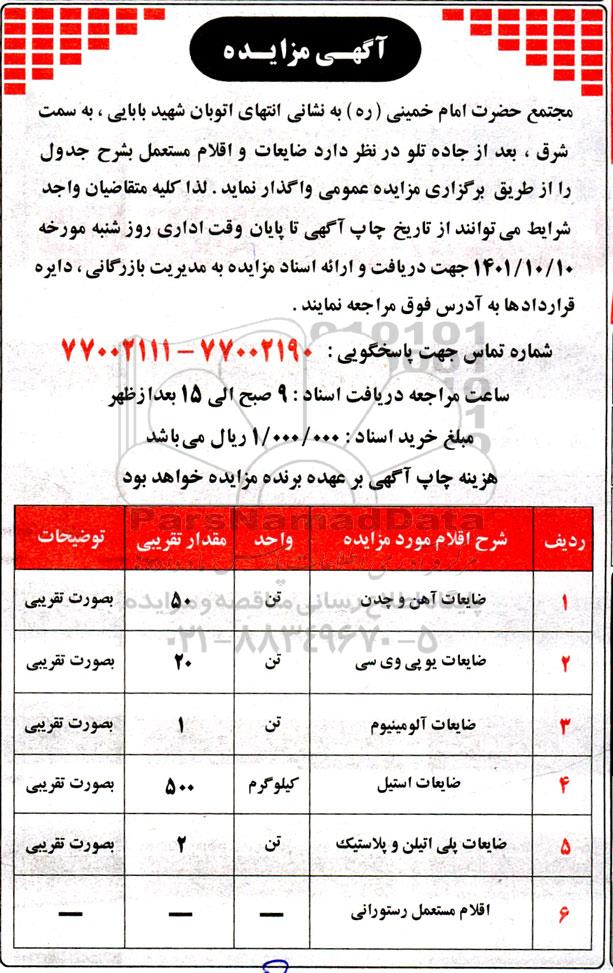 آگهـی مزایـده
مجتمع حضرت امام خمینی (ره) به نشانی انتهای اتوبان شهید بابایی ، به سمت
شرق ، بعد از جاده تلو در نظر دارد ضایعات و اقلام مستعمل بشرح جدول
را از طریق برگزاری مزایده عمومی واگذار نماید . لذا کلیه متقاضیان واجد
شرایط می توانند از تاریخ چاپ آگهی تا پایان وقت اداری روز شنبه مورخه
۱۴۰۱/۱۰/۱۰ جهت دریافت و ارائه اسناد مزایده به مدیریت بازرگانی ، دایره
قراردادها به آدرس فوق مراجعه نمایند .
شماره تماس جهت پاسخگویی : ۷۷۰۰۲۱۹۰ – ۷۷۰۰۲۱۱۱
ساعت مراجعه دریافت اسناد : ۹ صبح الی ۱۵ بعدازظهر
مبلغ خرید اسناد : ۱/۰۰۰/۰۰۰ ریال می باشد
هزینه چاپ آگهی بر عهده برنده مزایده خواهد بود
ParsNamadData
ردیف شرح اقلام مورد مزایده واحد مقدار تقریبی توضیحات
۱ ضایعات آهن و چدن تن ۵۰ بصورت تقریبی
پایگاه اطلاع رسانی مناقصه و مزایده
۰۲۱-۸۸۳۴۹۶۷۰-۵
۲ ضایعات یو پی وی سی تن ۲۰ بصورت تقریبی
۳ ضایعات آلومینیوم تن ۱ بصورت تقریبی
۴ ضایعات استیل کیلوگرم ۵۰۰ بصورت تقریبی
۵ ضایعات پلی اتیلن و پلاستیک تن ۲ بصورت تقریبی
۶ اقلام مستعمل رستورانی — — —